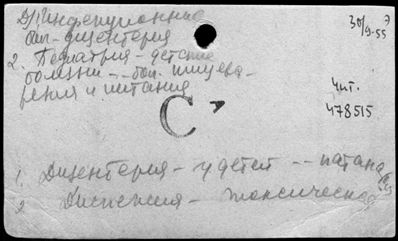 1) Инфекционные
бол - дизентерия
2. Педиатрия - детские
болезни -- бол. пищева-
рения и питания
30/9-55
чит.
478515
С
1. Дизентерия - у детей --
2. Диспепсия - токсическая